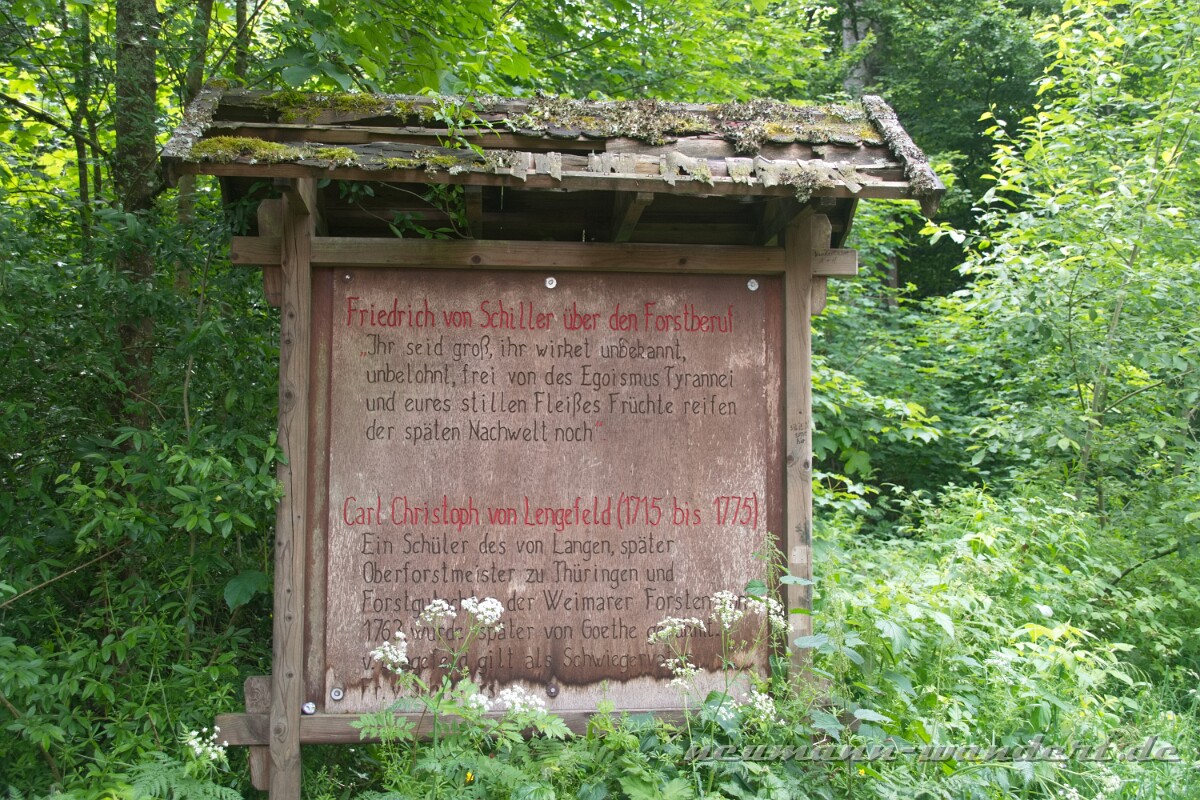 Friedrich von Schiller über den Forstberuf
„Ihr seid groß, ihr wirket unbekannt,
unbelohnt, frei von des Egoismus Tyrannei
und eures stillen Fleißes Früchte reifen
der späten Nachwelt noch“
Carl Christoph von Lengefeld (1715 bis 1775)
Ein Schüler des von Langen, später
Oberforstmeister zu Thüringen und
der Weimarer Forsten
1763 wurde später von Goethe
v. gilt als
neumann-wandert.de